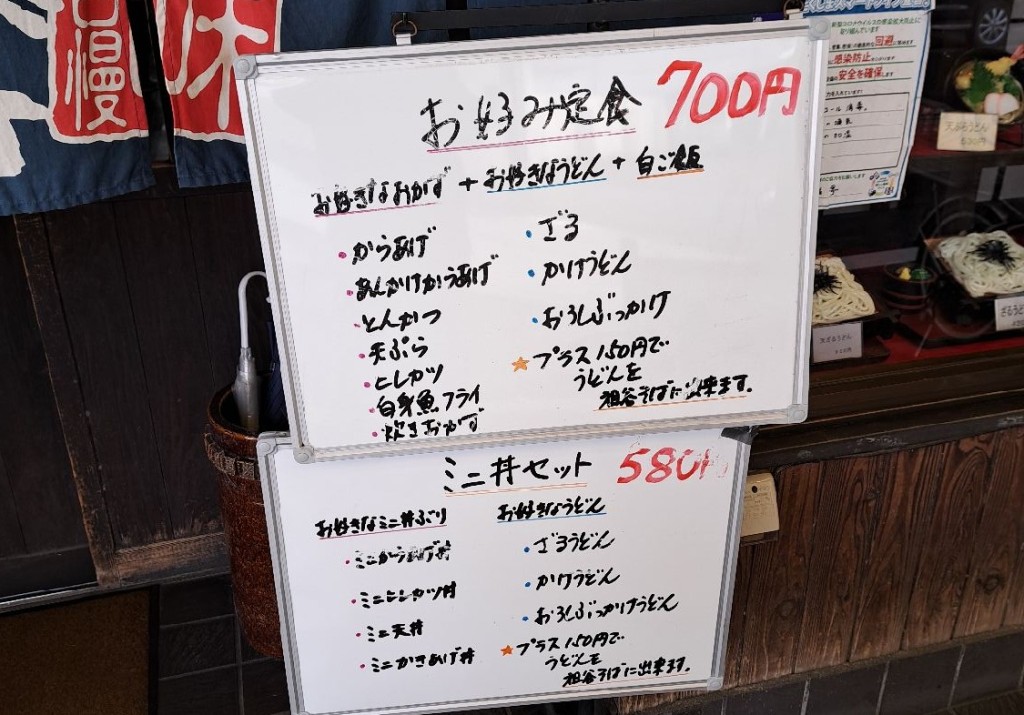 お好み定食 700円
お好きなおかず + お好きなうどん + 白ご飯
・からあげ
・あんかけからあげ
・とんかつ
・天ぷら
・ヒレカツ
・白身魚フライ
・炊きおかず
・ざる
・かけうどん
・おろしぶっかけ
★プラス150円で
うどんを
祖谷そばに出来ます。
ミニ丼セット 580円
お好きなミニ丼ぶり
・ミニからあげ丼
・ミニヒレカツ丼
・ミニ天丼
・ミニかきあげ丼
お好きなうどん
・ざるうどん
・かけうどん
・おろしぶっかけうどん
★プラス150円で
うどんを
祖谷そばに出来ます。
慢
新型コロナウイルスの感染拡大防止に
取り組んでいます
回避
感染防止
安全を確保します
天ぷらうどん